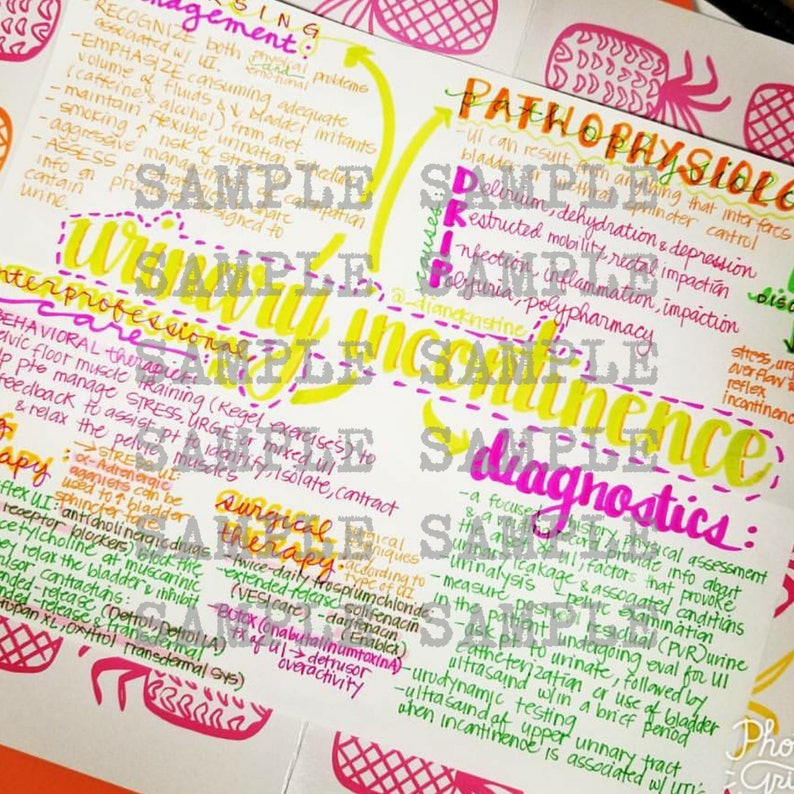 NURSING
management:
- RECOGNIZE both physical and emotional problems
associated w/ UI.
- EMPHASIZE consuming adequate
volume of fluids & ↓ bladder irritants
(caffeine & alcohol) from diet.
- maintain flexible urination schedule
- smoking ↑ risk of stress
- aggressive management of constipation
- ASSESS
info on products designed to
contain
urine.
PATHOPHYSIOLO
pathophysiolo
- UI can result from anything that interferes
bladder or urethral sphincter control
causes:
Delirium, dehydration & depression
Restricted mobility, rectal impaction
Infection, inflammation, impaction
Polyuria, polypharmacy
DISC
stress, urg
overflow
reflex
incontinenc
urinary incontinence
@_dianekristine_
interprofessional
care
BEHAVIORAL therapies:
pelvic floor muscle training (Kegel exercises) to
help pts manage STRESS, URGE, or mixed UI
feedback to assist pt to identify, isolate, contract
& relax the pelvic muscles
→ STRESS UI:
α-Adrenergic
agonists can be
used to ↑ bladder
sphincter tone
reflex UI: anticholinergic drugs
receptor blockers) block the
acetylcholine at muscarinic
they relax the bladder & inhibit
contractions:
(Detrol, Detrol LA)
XL, oxytrol Transdermal Sys)
surgical
therapy:
surgical
techniques
according to
type of UI
- twice-daily trospium chloride
- extended release solifenacin
(VESIcare) - darifenacin
(Enablex)
- BOTOX (onabotulinumtoxinA)
tx of UI → detrusor
overactivity
diagnostics:
- a focused history, physical assessment
provide info about
factors that provoke
urinary leakage & associated conditions
- urinalysis - pelvic examination
- measure postvoid residual (PVR) urine
in the patient undergoing eval for UI
- ask pt to urinate, followed by
catheterization or use of bladder
ultrasound w/in a brief period
- urodynamic testing
- ultrasound of upper urinary tract
when incontinence is associated w/ UTI's
SAMPLE SAMPLE SAMPLE
SAMPLE SAMPLE SAMPLE
SAMPLE SAMPLE SAMPLE
SAMPLE SAMPLE SAMPLE
SAMPLE SAMPLE SAMPLE
SAMPLE SAMPLE SAMPLE
Pho
Gri